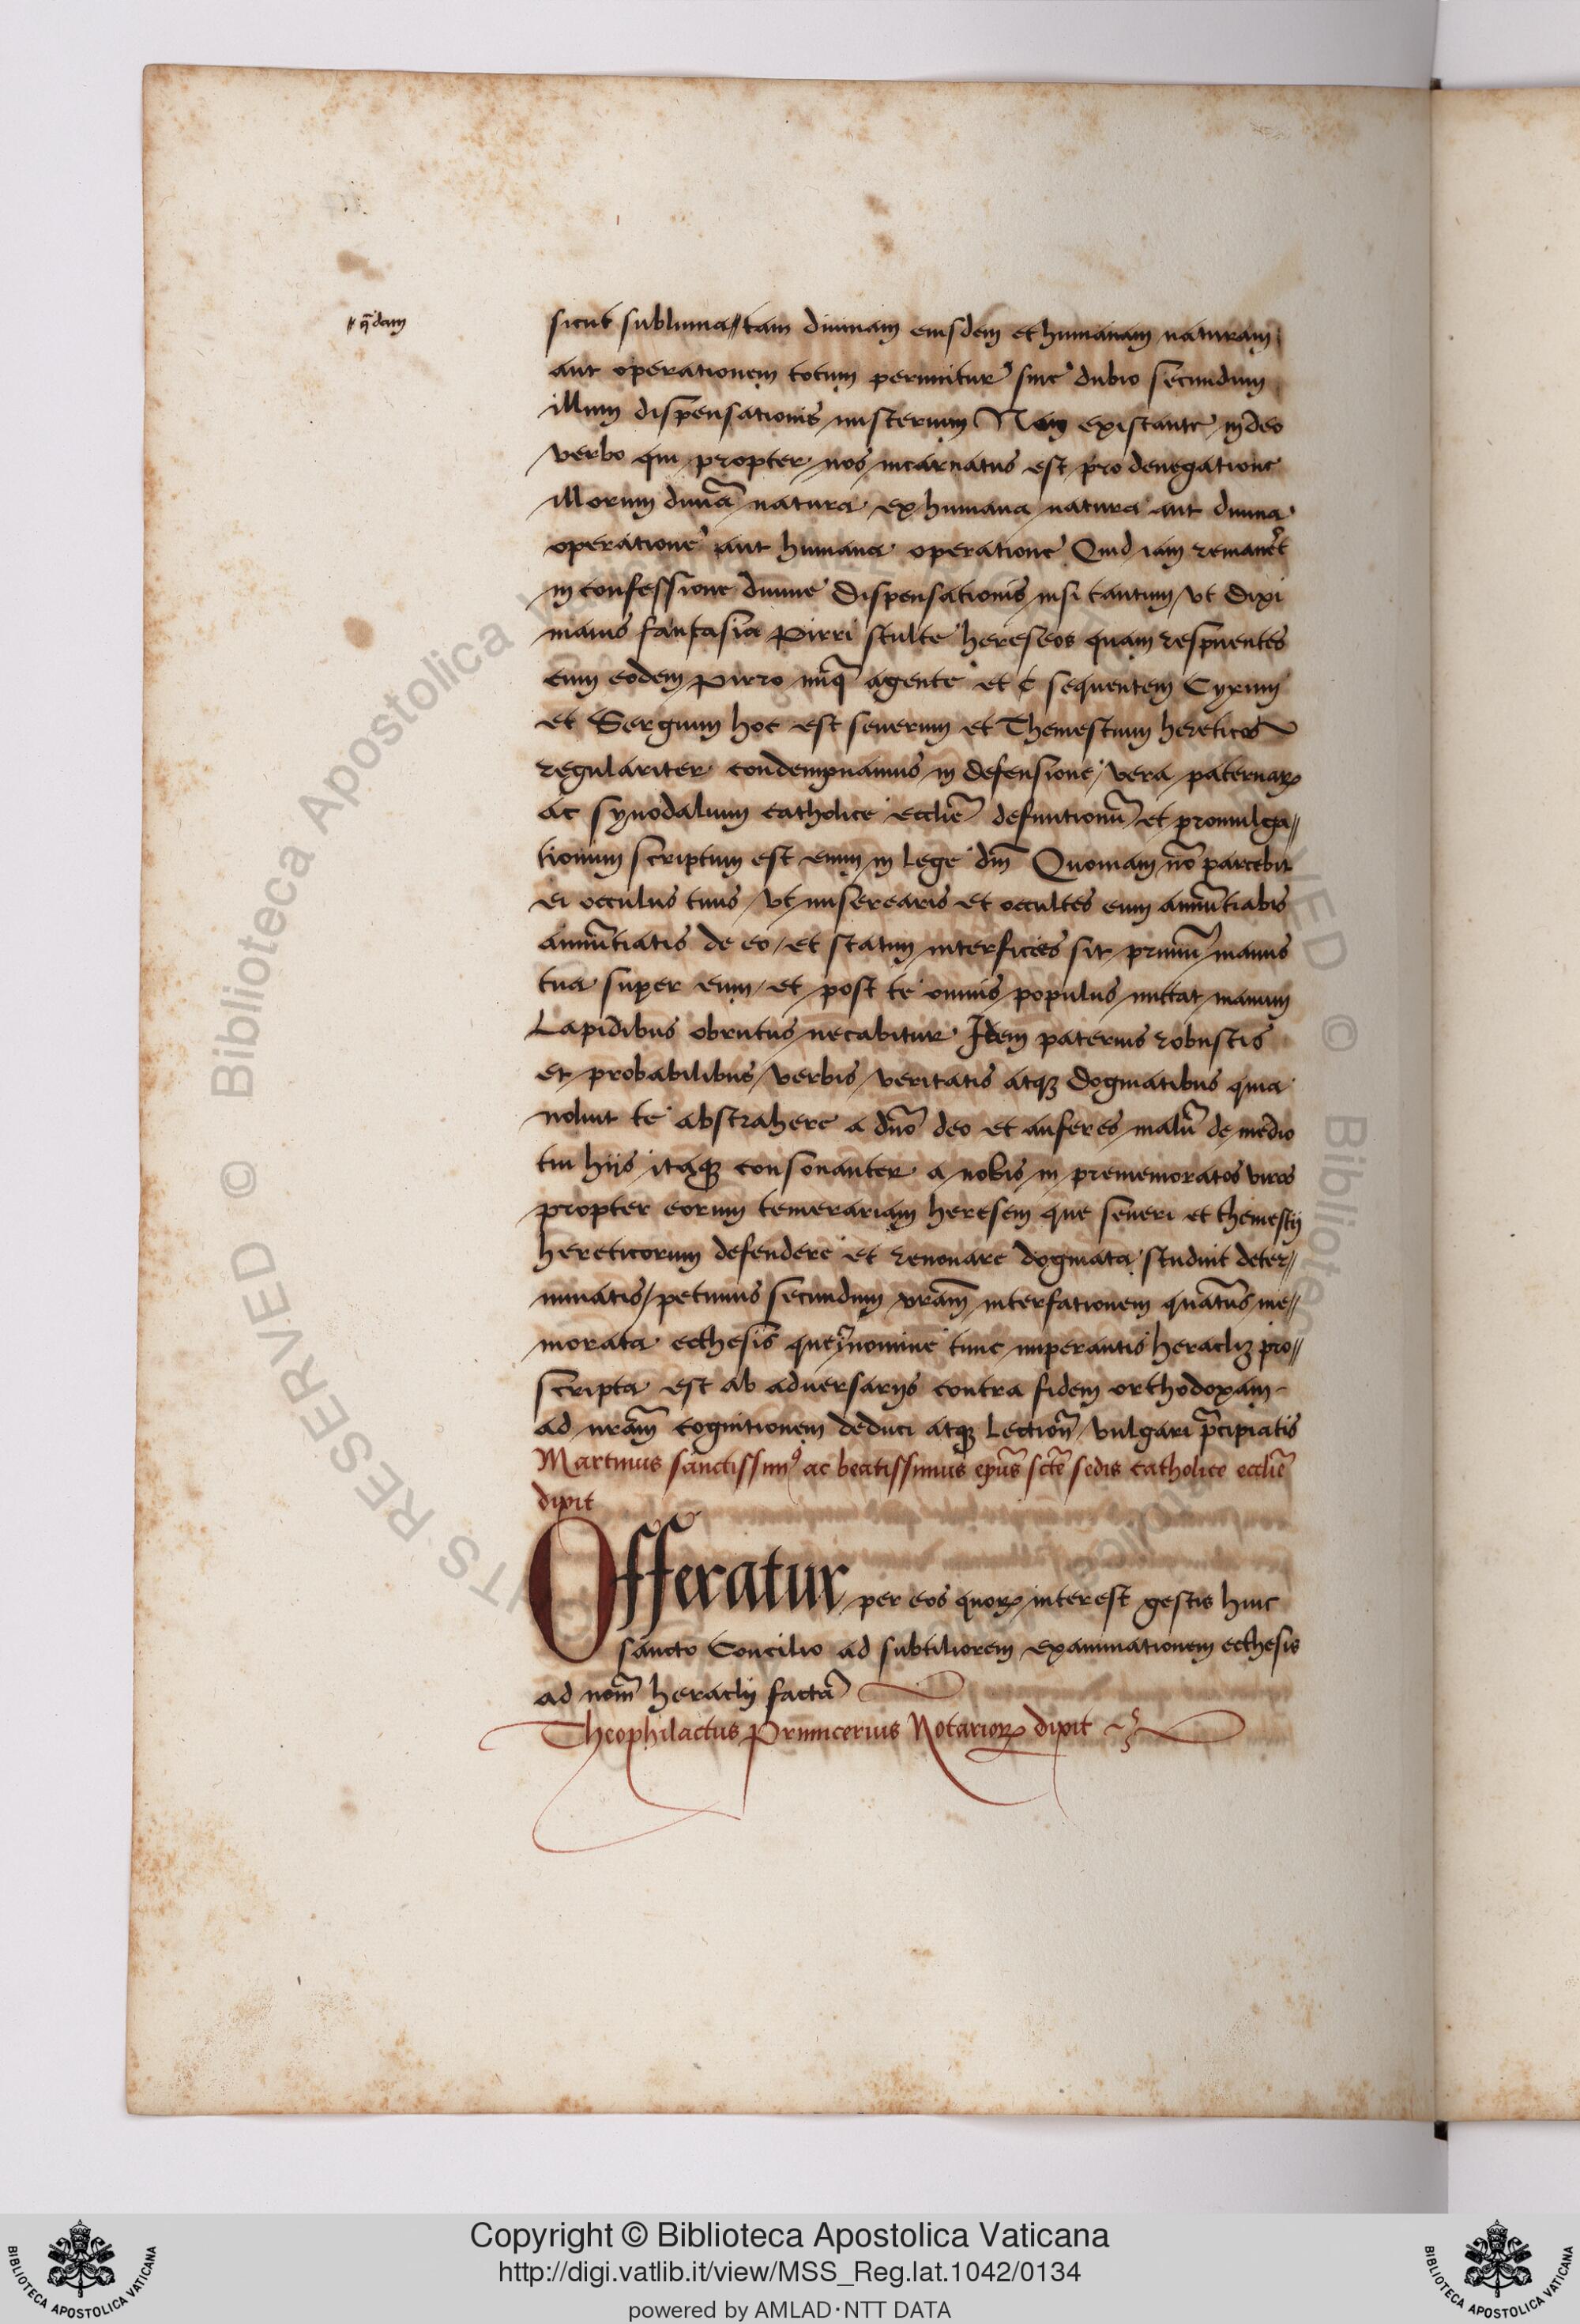 〃 q̄dam
sicut sublima〃tam diuinam eiusdem et humanam naturam
aut operationem totum perimitur sine dubio secundum
illum dispensationis misterium Non existante in deo
verbo qui propter nos incarnatus est pro denegatione
illorum diuīa natura ex humana natura aut diuina
operatione aut humana operatione Quid iam remanet
in confessione diuine dispensationis nisi tantum vt dixi
manis fantasia Pirri stulte hereseos quam respuentes
cum eodem Pirro agente et sequentem Cyrum
et Sergium hoc est seuerum et Themestium hereticos
regulariter condempnamus in defensione vera paternaꝝ
ac synodalium catholice eccliē definitionū et promulga〃
tionum scriptum est enim in lege dnī Quoniam nō parcebit
ei occulus tuus vt miserearis et occultes eum annūtiabis
annūtiatis de eo et statim interficies sit primū manus
tua super eum et post te omnis populus mittat manum
Lapidibus obrutus necabitur Idem paternis robustis
et probabilibus verbis veritatis atqꝫ dogmatibus quia
noluit te abstrahere a dnō deo et auferes malū de medio
tui hijs itaqꝫ consonanter a nobis in prememoratos viros
propter eorum temerariam heresem que seueri et themestij
hereticorum defendere et renouare dogmata studuit deter〃
minatis petimus secundum vrām interfationem quatūs me〃
morata ecthesis que nomine tunc imperantis heraclij pro〃
scripta est ab aduersarijs contra fidem orthodoxam
ad nrām cognitionem deduci atqꝫ Lectionē vulgari p̄cipiatis
Martinus sanctissimꝰ ac beatissimus epūs sctē sedis catholice eccliē
dixit
Offeratur per eos quoꝝ interest gestis huic
sancto Concilio ad subtiliorem examinationem ecthesis
ad nom̄ heraclij factā
Theophilactus Primicerius Notarioꝝ dixit
RIGHTS RESERVED © Biblioteca Apostolica Vaticana
Copyright © Biblioteca Apostolica Vaticana
http://digi.vatlib.it/view/MSS_Reg.lat.1042/0134
powered by AMLAD·NTT DATA
BIBLIOTECA APOSTOLICA VATICANA
BIBLIOTECA APOSTOLICA VATICANA